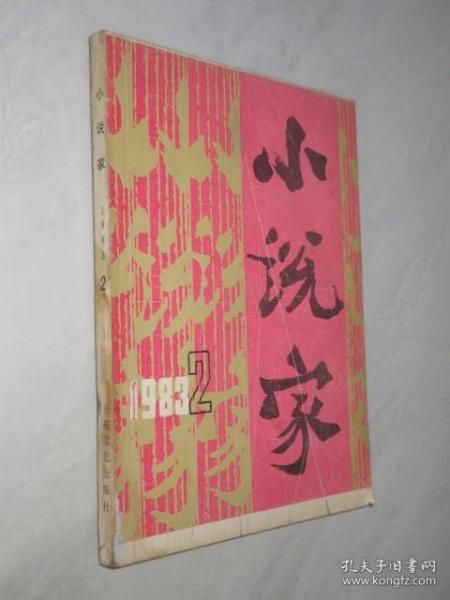 小说家
1983
2
小说家
1983
2
百花文艺出版社
孔夫子旧书网
www.kongfz.com